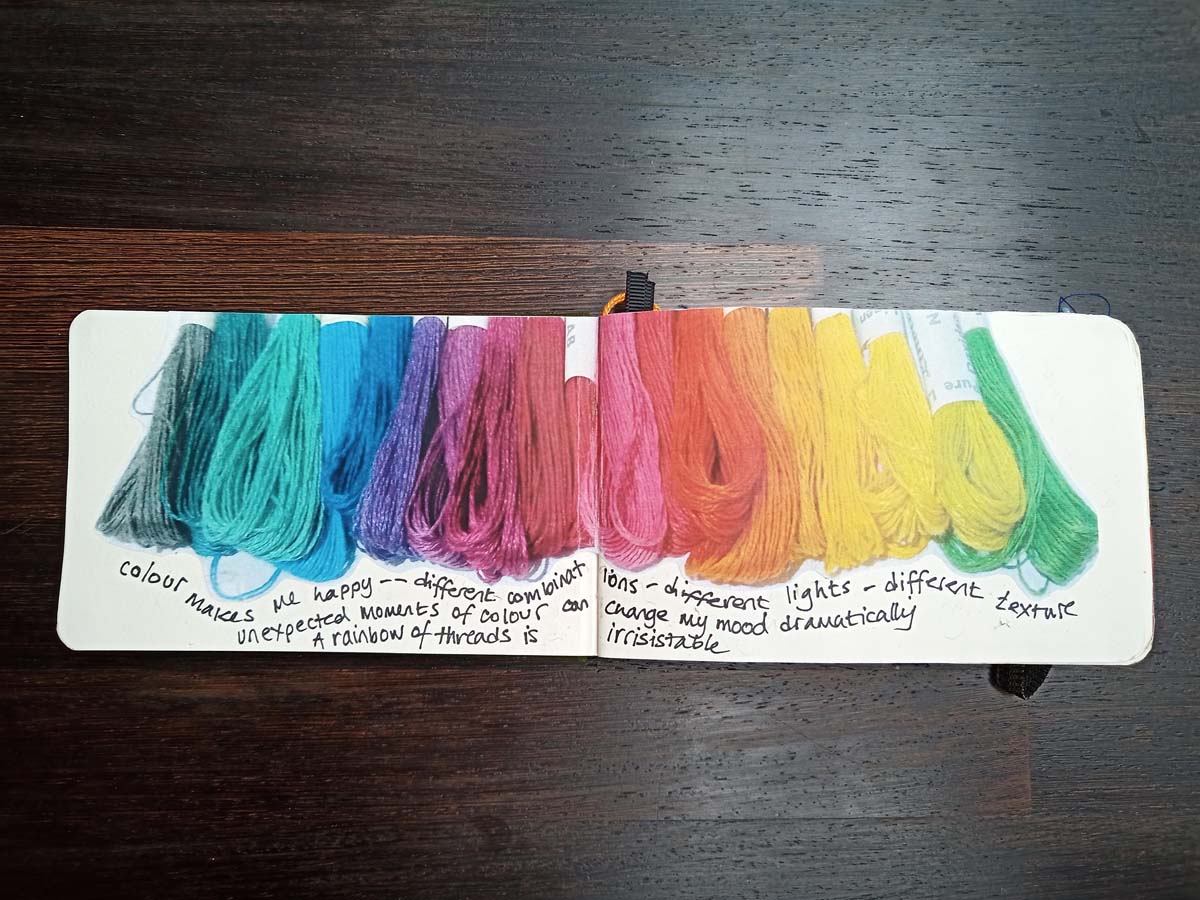 colour makes me happy -- different combinations - different lights - different texture
unexpected moments of colour can change my mood dramatically
A rainbow of threads is irrisistable